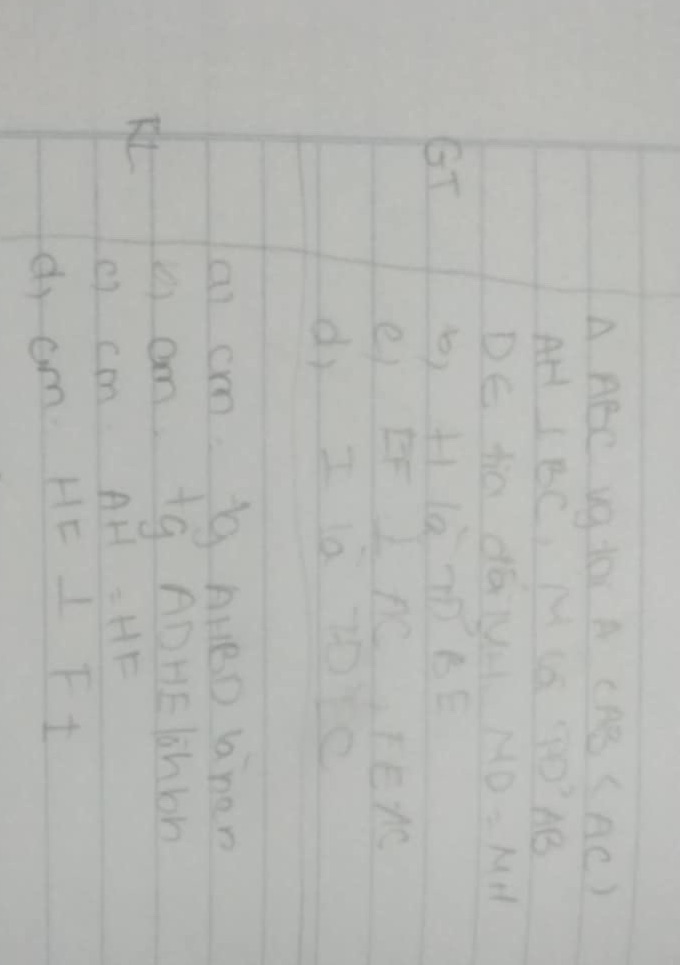 Δ ABC vg tại A (AB < AC)
AH ⊥ BC, M là TĐ AB
DE tia đối MH MD = MH
GT b, H là TĐ BE
c, EF ⊥ AC, F E AC
d, I là TĐ C
a) cm. tg AHBD là hcn
KL b) cm. tg ADHE là hbh
c) cm AH = HF
d, cm. HF ⊥ FI